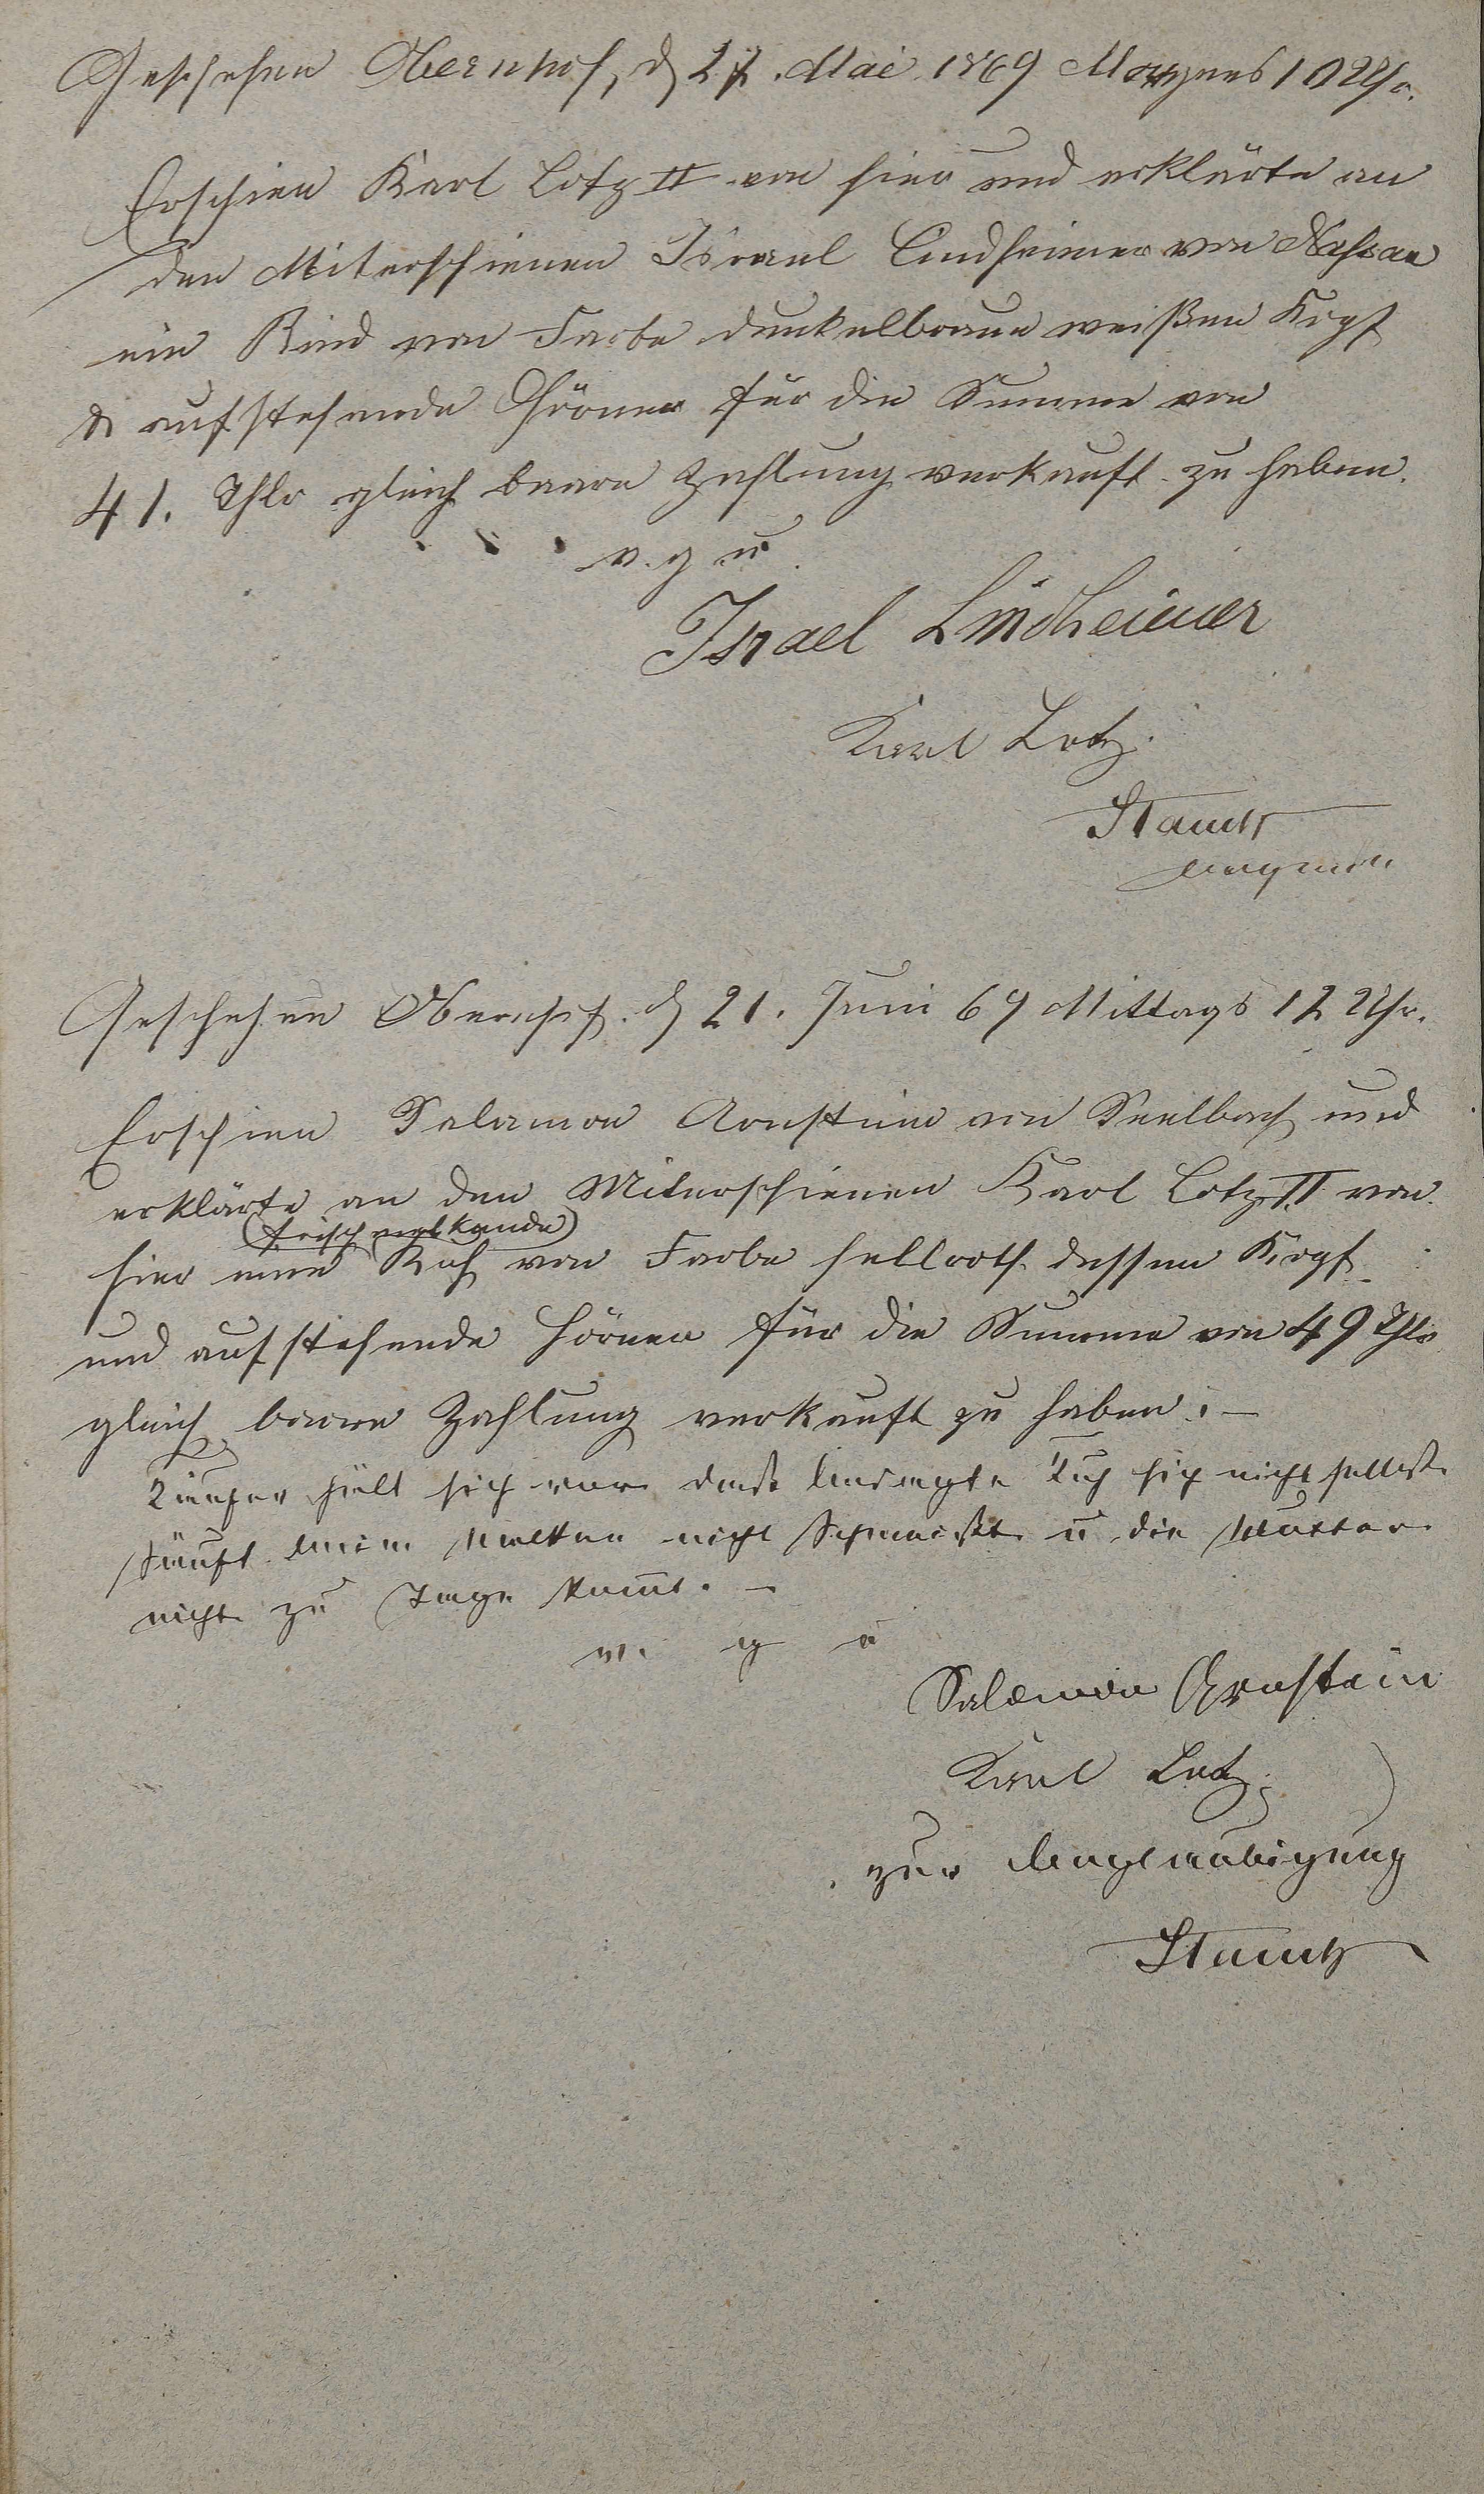 Geschehen Obernhof, d 27. Mai 1869 Morgens 10 Uhr.
Erschien Karl Lotz II von hier und erklärte an
den Miterschienen Israel Lindheimer von Nassau
ein Rind von Farbe dunkelbraun weißen Kopf
& aufstehende Hörner für die Summe von
41. Thlr gleich baare Zahlung verkauft zu haben.
v. g u.
Israel Lindheimer
Karl Lotz.
Geschehen Obernhof. d 21. Juni 69 Mittags 12 Uhr.
Erschien Salamon Arnstein von Seelbach und
erklärte an den Miterschienen Karl Lotz II von
(frisch melkende)
hier eine Kuh von Farbe hellroth dessen Kopf
und aufstehende Hörner für die Summe von 49 Thlr
gleich baare Zahlung verkauft zu haben. –
Käufer hält sich vor daß besagte Kuh sich nicht selbst
säuft beim Melken nicht schmeißt u die Mutter
nicht zu Tage kommt. –
v. g u
Salomon Arnstein
Karl Lotz.
zur Beglaubigung